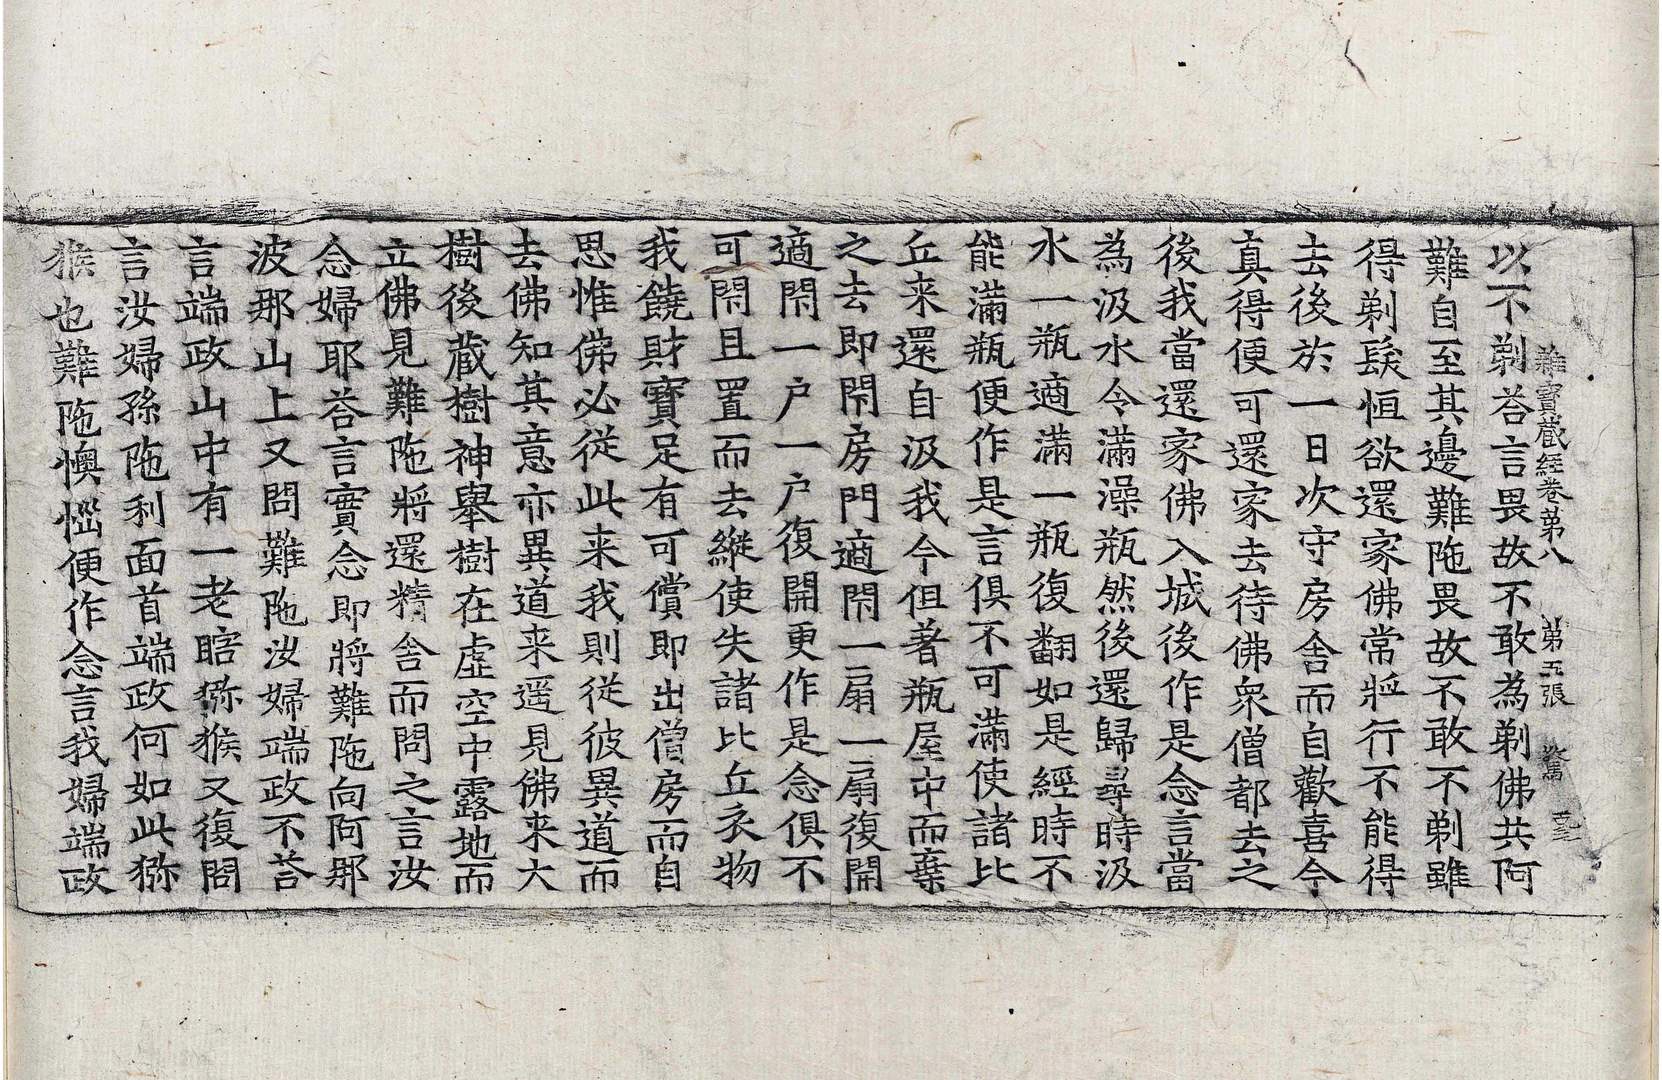 雜寶蔵経卷第八　第五張　驚
以不剃荅言畏故不敢為剃佛共阿
難自至其邊難陁畏故不敢不剃雖
得剃髮恒欲還家佛常將行不能得
去後於一日次守房舎而自歡喜今
真得便可還家去待佛衆僧都去之
後我當還家佛入城後作是念言當
為汲水令滿澡瓶然後還歸尋時汲
水一瓶適滿一瓶復翻如是經時不
能滿瓶便作是言俱不可滿使諸比
丘来還自汲我今但著瓶屋中而棄
之去即閇房門適閇一扇一扇復開
適閇一户一户復開更作是念俱不
可閇且置而去縱使失諸比丘衣物
我饒財寶足有可償即出僧房而自
思惟佛必從此来我則從彼異道而
去佛知其意亦異道来遥見佛来大
樹後蔵樹神舉樹在虚空中露地而
立佛見難陁將還精舎而問之言汝
念婦耶荅言實念即將難陁向阿那
波那山上又問難陁汝婦端政不荅
言端政山中有一老瞎猕猴又復問
言汝婦孫陁利面首端政何如此猕
猴也難陁懊惱便作念言我婦端政